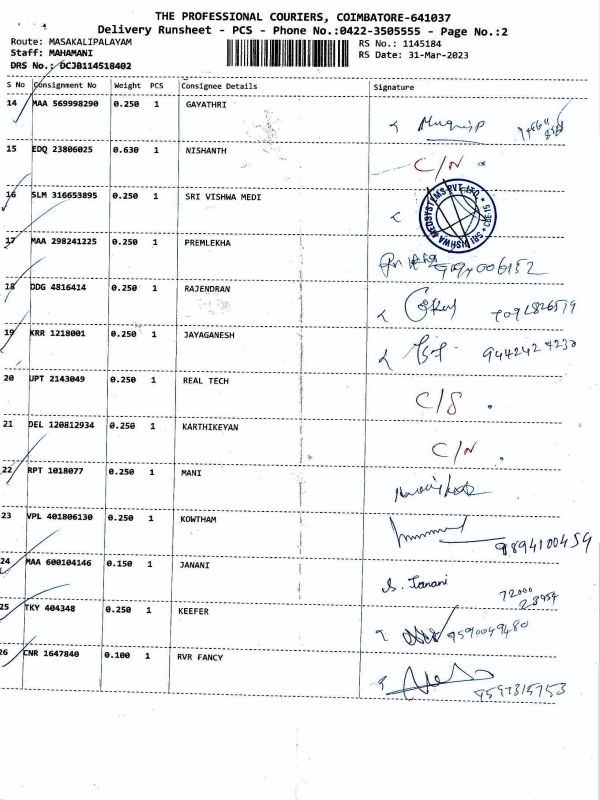 THE PROFESSIONAL COURIERS, COIMBATORE-641037
Delivery Runsheet - PCS - Phone No.:0422-3505555 - Page No.:2
Route: MASAKALIPALAYAM
RS No.: 1145184
Staff: MAHAMANI
RS Date: 31-Mar-2023
DRS No.: DCJB114518402
S No Consignment No Weight PCS Consignee Details Signature
14 MAA 569998290 0.250 1 GAYATHRI
15 EDQ 23806025 0.630 1 NISHANTH C/N
16 SLM 316653895 0.250 1 SRI VISHWA MEDI
SRI VISHWA MEDSYSTEMS PVT LTD.
17 MAA 298241225 0.250 1 PREMLEKHA
18 DDG 4816414 0.250 1 RAJENDRAN
19 KRR 1218001 0.250 1 JAYAGANESH
20 UPT 2143049 0.250 1 REAL TECH C/S
21 DEL 120812934 0.250 1 KARTHIKEYAN C/N
22 RPT 1018077 0.250 1 MANI
23 VPL 401806130 0.250 1 KOWTHAM 9894100454
24 MAA 600104146 0.150 1 JANANI S. Janani
25 TKY 404348 0.250 1 KEEFER 9590049480
26 CNR 1647840 0.100 1 RVR FANCY